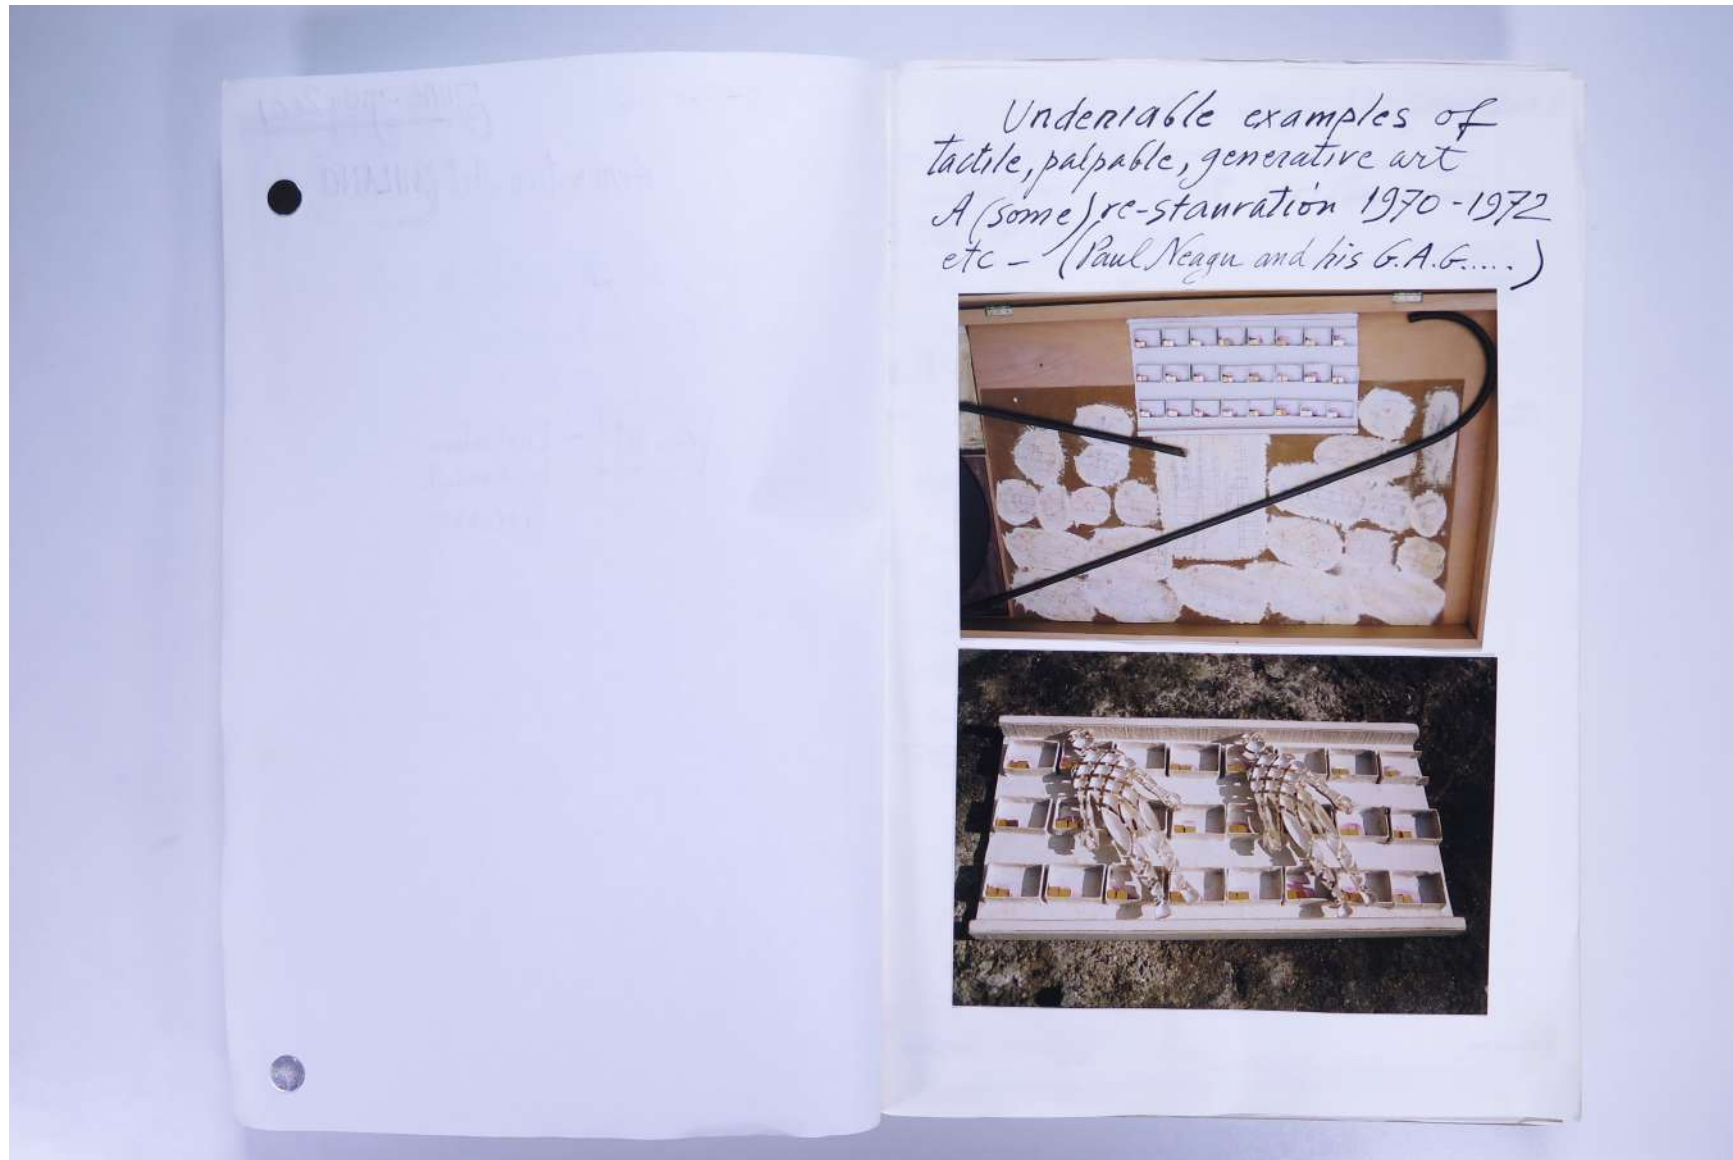 Undeniable examples of
tactile, palpable, generative art
A (some) re-stauration 1970-1972
etc – (Paul Neagu and his G.A.G.....)